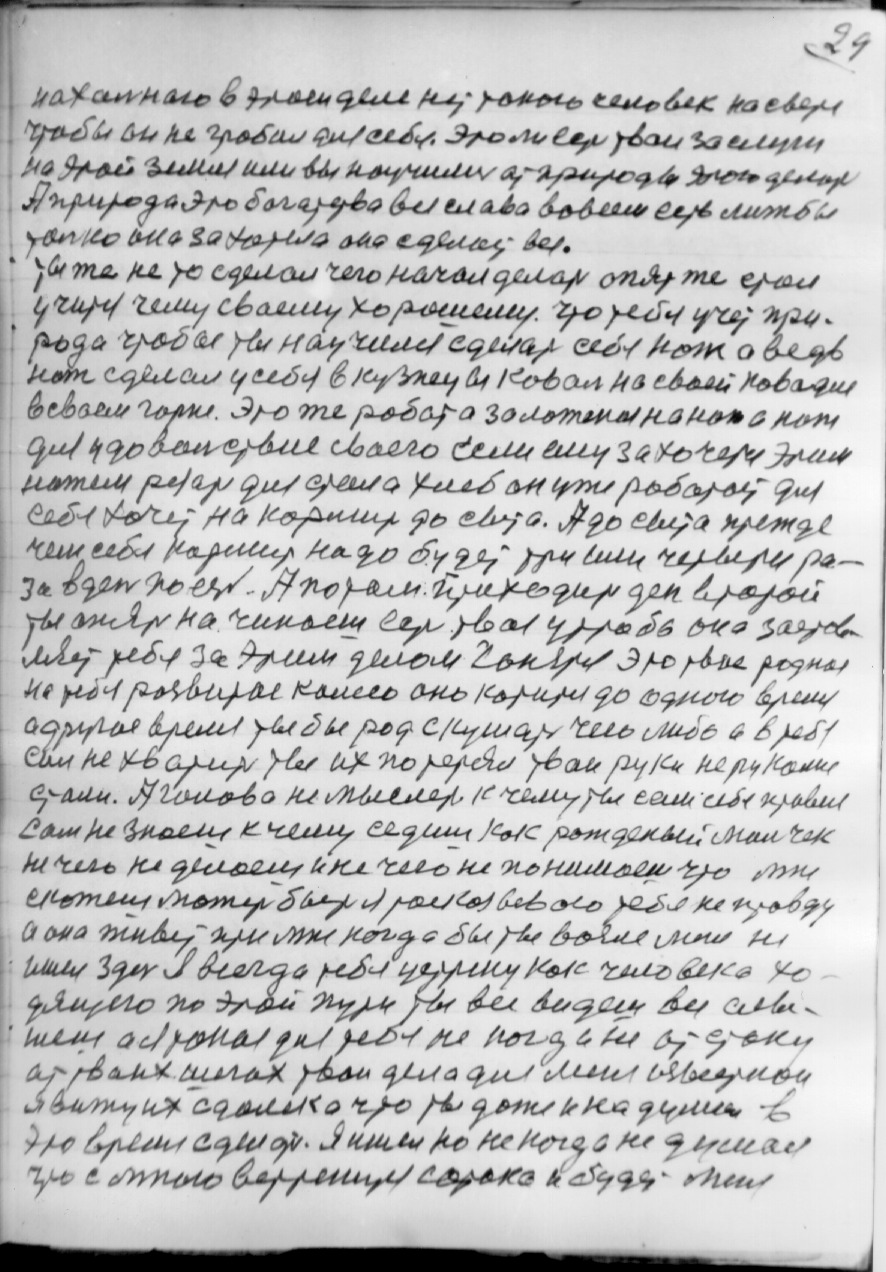 29
нахального в этом деле нет такого человек на свете
чтобы он не гробил для себя. Это ли есть твои заслуги
на этой земли или вы научились от природы этого делать
А природа это богатства вся слава во всем есть лиж бы
толко она захотела она сделает все.
ты же не то сделал чего начал делать опять же стал
учится чему своему хорошему. что тебя учет при-
рода чтобы ты научился сделать себе нож а ведь
нож сделал у себя в кузнеце ковал на своей
в своем горне. Это же работа заложеная на нож а нож
для удовольствие своего если ему захочется этим
ножем резать для стола хлеб он уже работает для
себя хочет на кормить до света. А до света прежде
чем себя кормить надо будет три или четыри ра-
за в день поесть. А потом приходить ден второй
ты опять на чинаеш есть твоя утроба она застав-
ляет тебя за этим делом гонятся Это твое родное
на тебя развитое колесо оно катится до одного время
а другое время ты бы рад скушать чего либо а в тебя
сил не хватит ты их потерял твои руки не руками
стали. А голова не мыслею к чему ты сам себе привел
Сам не знаеш к чему седиш как рожденый малчек
не чего не делаеш и не чего не понимаеш что мне
скажеш может быть я расказываю тебе не правду
а она живет при мне когда бы ты возле мене не
ишел здесь Я всегда тебя устрену как человека хо-
дящего по этой пути ты все видеш все слы-
шеш а я такая для тебя не когда не отстану
от твоих шегах твои дела для мене известнаи
я вижу их сдалека что ты даже и не думал в
это время сделать. Я ишел но не когда не думал
что с мною встретится сорока и будет мене